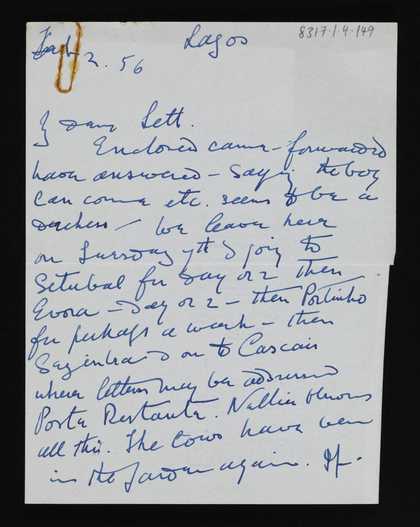 Lagos
8317.1.4.149
Feb 2. 56
My dear Sett.
Enclosed came – forwarded
have answered – saying the boy
can come etc. seems to be a
duchess – We leave here
on Tuesday 7th & going to
Setubal for day or 2 then
Evora – day or 2 – then Portinho
for perhaps a week – then
Sezimbra & on to Cascais
where letters may be addressed
Posta Restante. Nellie knows
all this. The cows have been
in the garden again. If